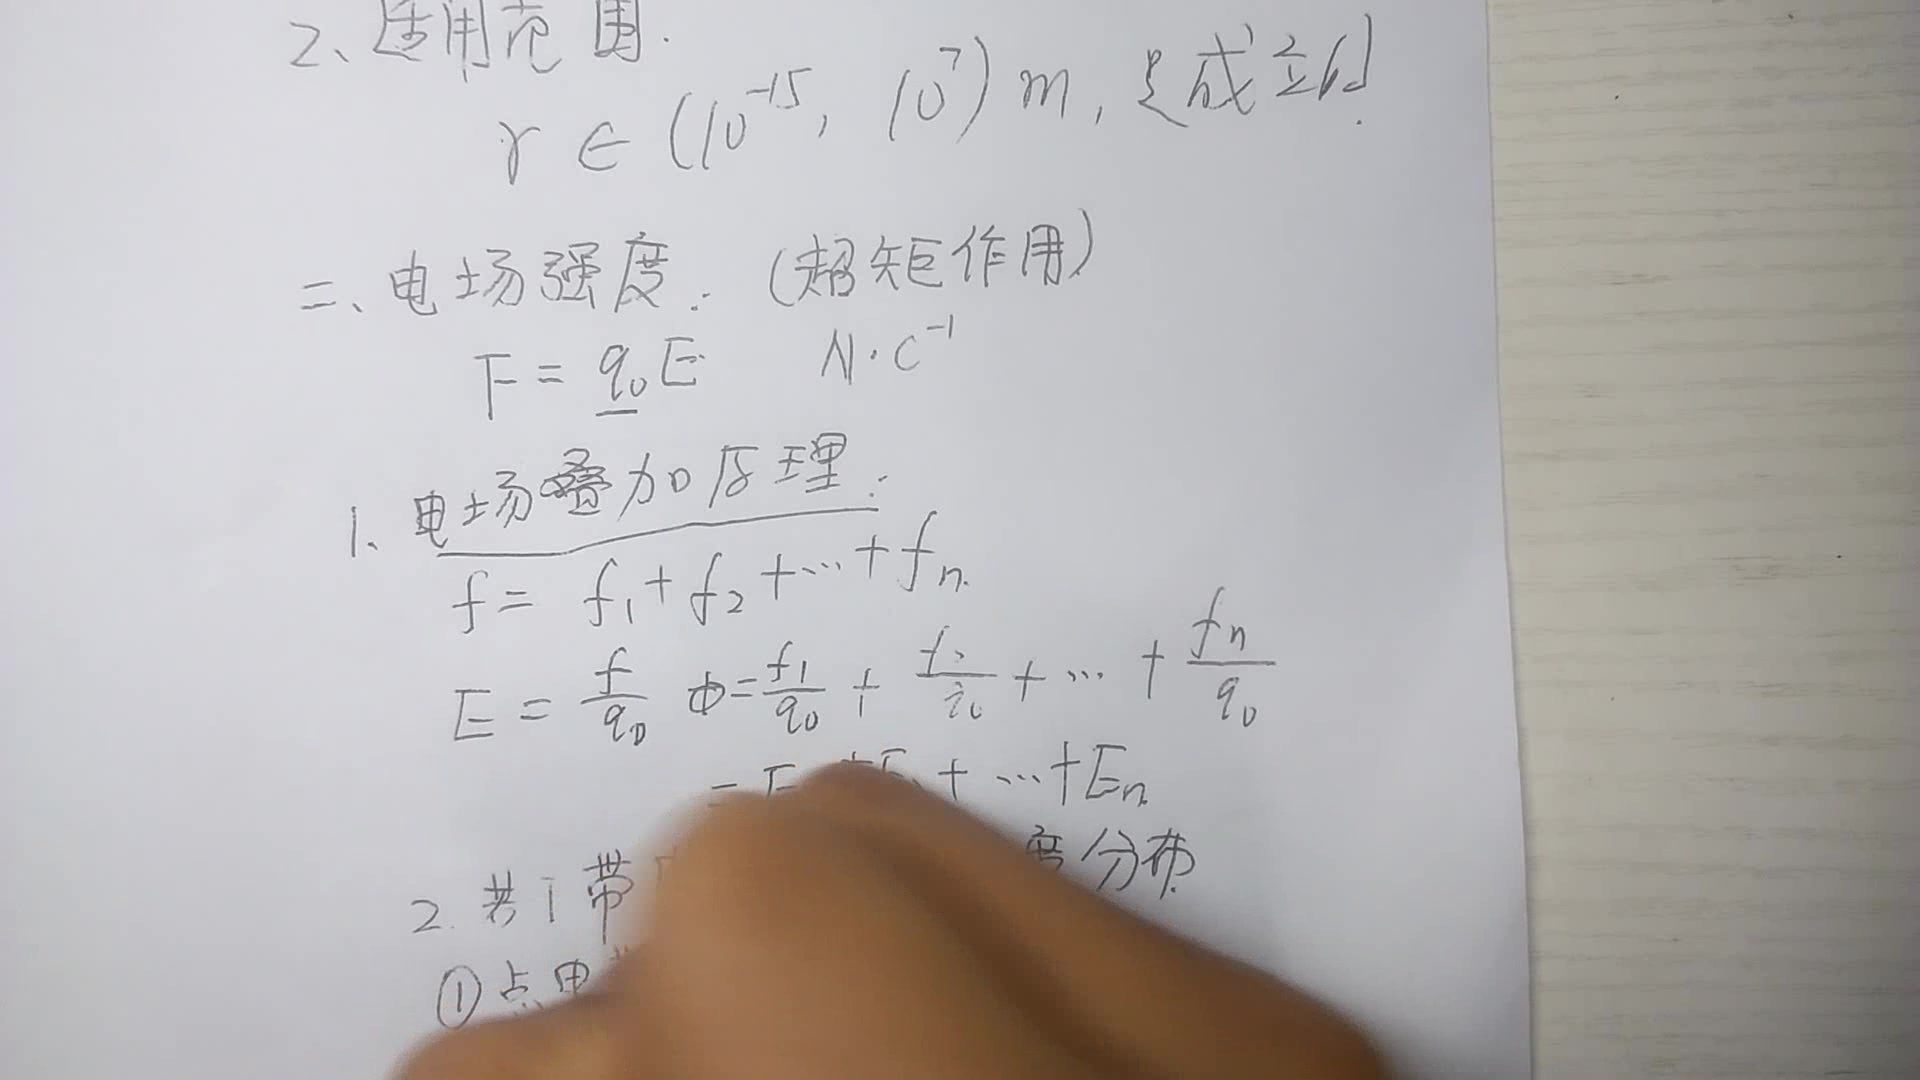 2、适用范围.
r ∈ (10⁻¹⁵, 10⁷) m, 是成立的.
二、电场强度: (超矩作用)
F = q₀E N·C⁻¹
1、电场叠加原理:
f = f₁ + f₂ + … + fₙ
E = f/q₀ = f₁/q₀ + f₂/q₀ + … + fₙ/q₀
= E + E + … + Eₙ
2. 带 度分布
① 点电